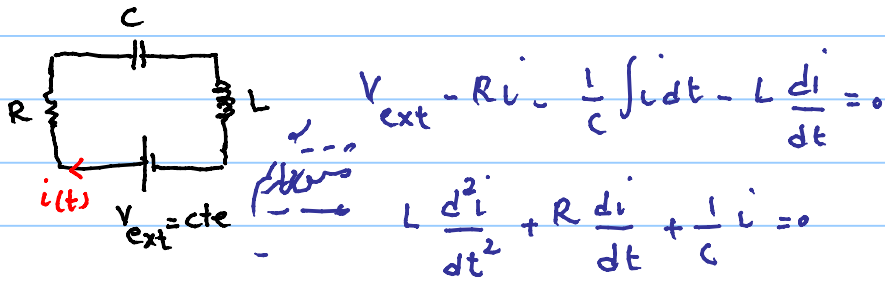 C
R
L
i(t)
V_ext = cte
V_ext - Ri - 1/C ∫ i dt - L di/dt = 0
L d²i/dt² + R di/dt + 1/C i = 0